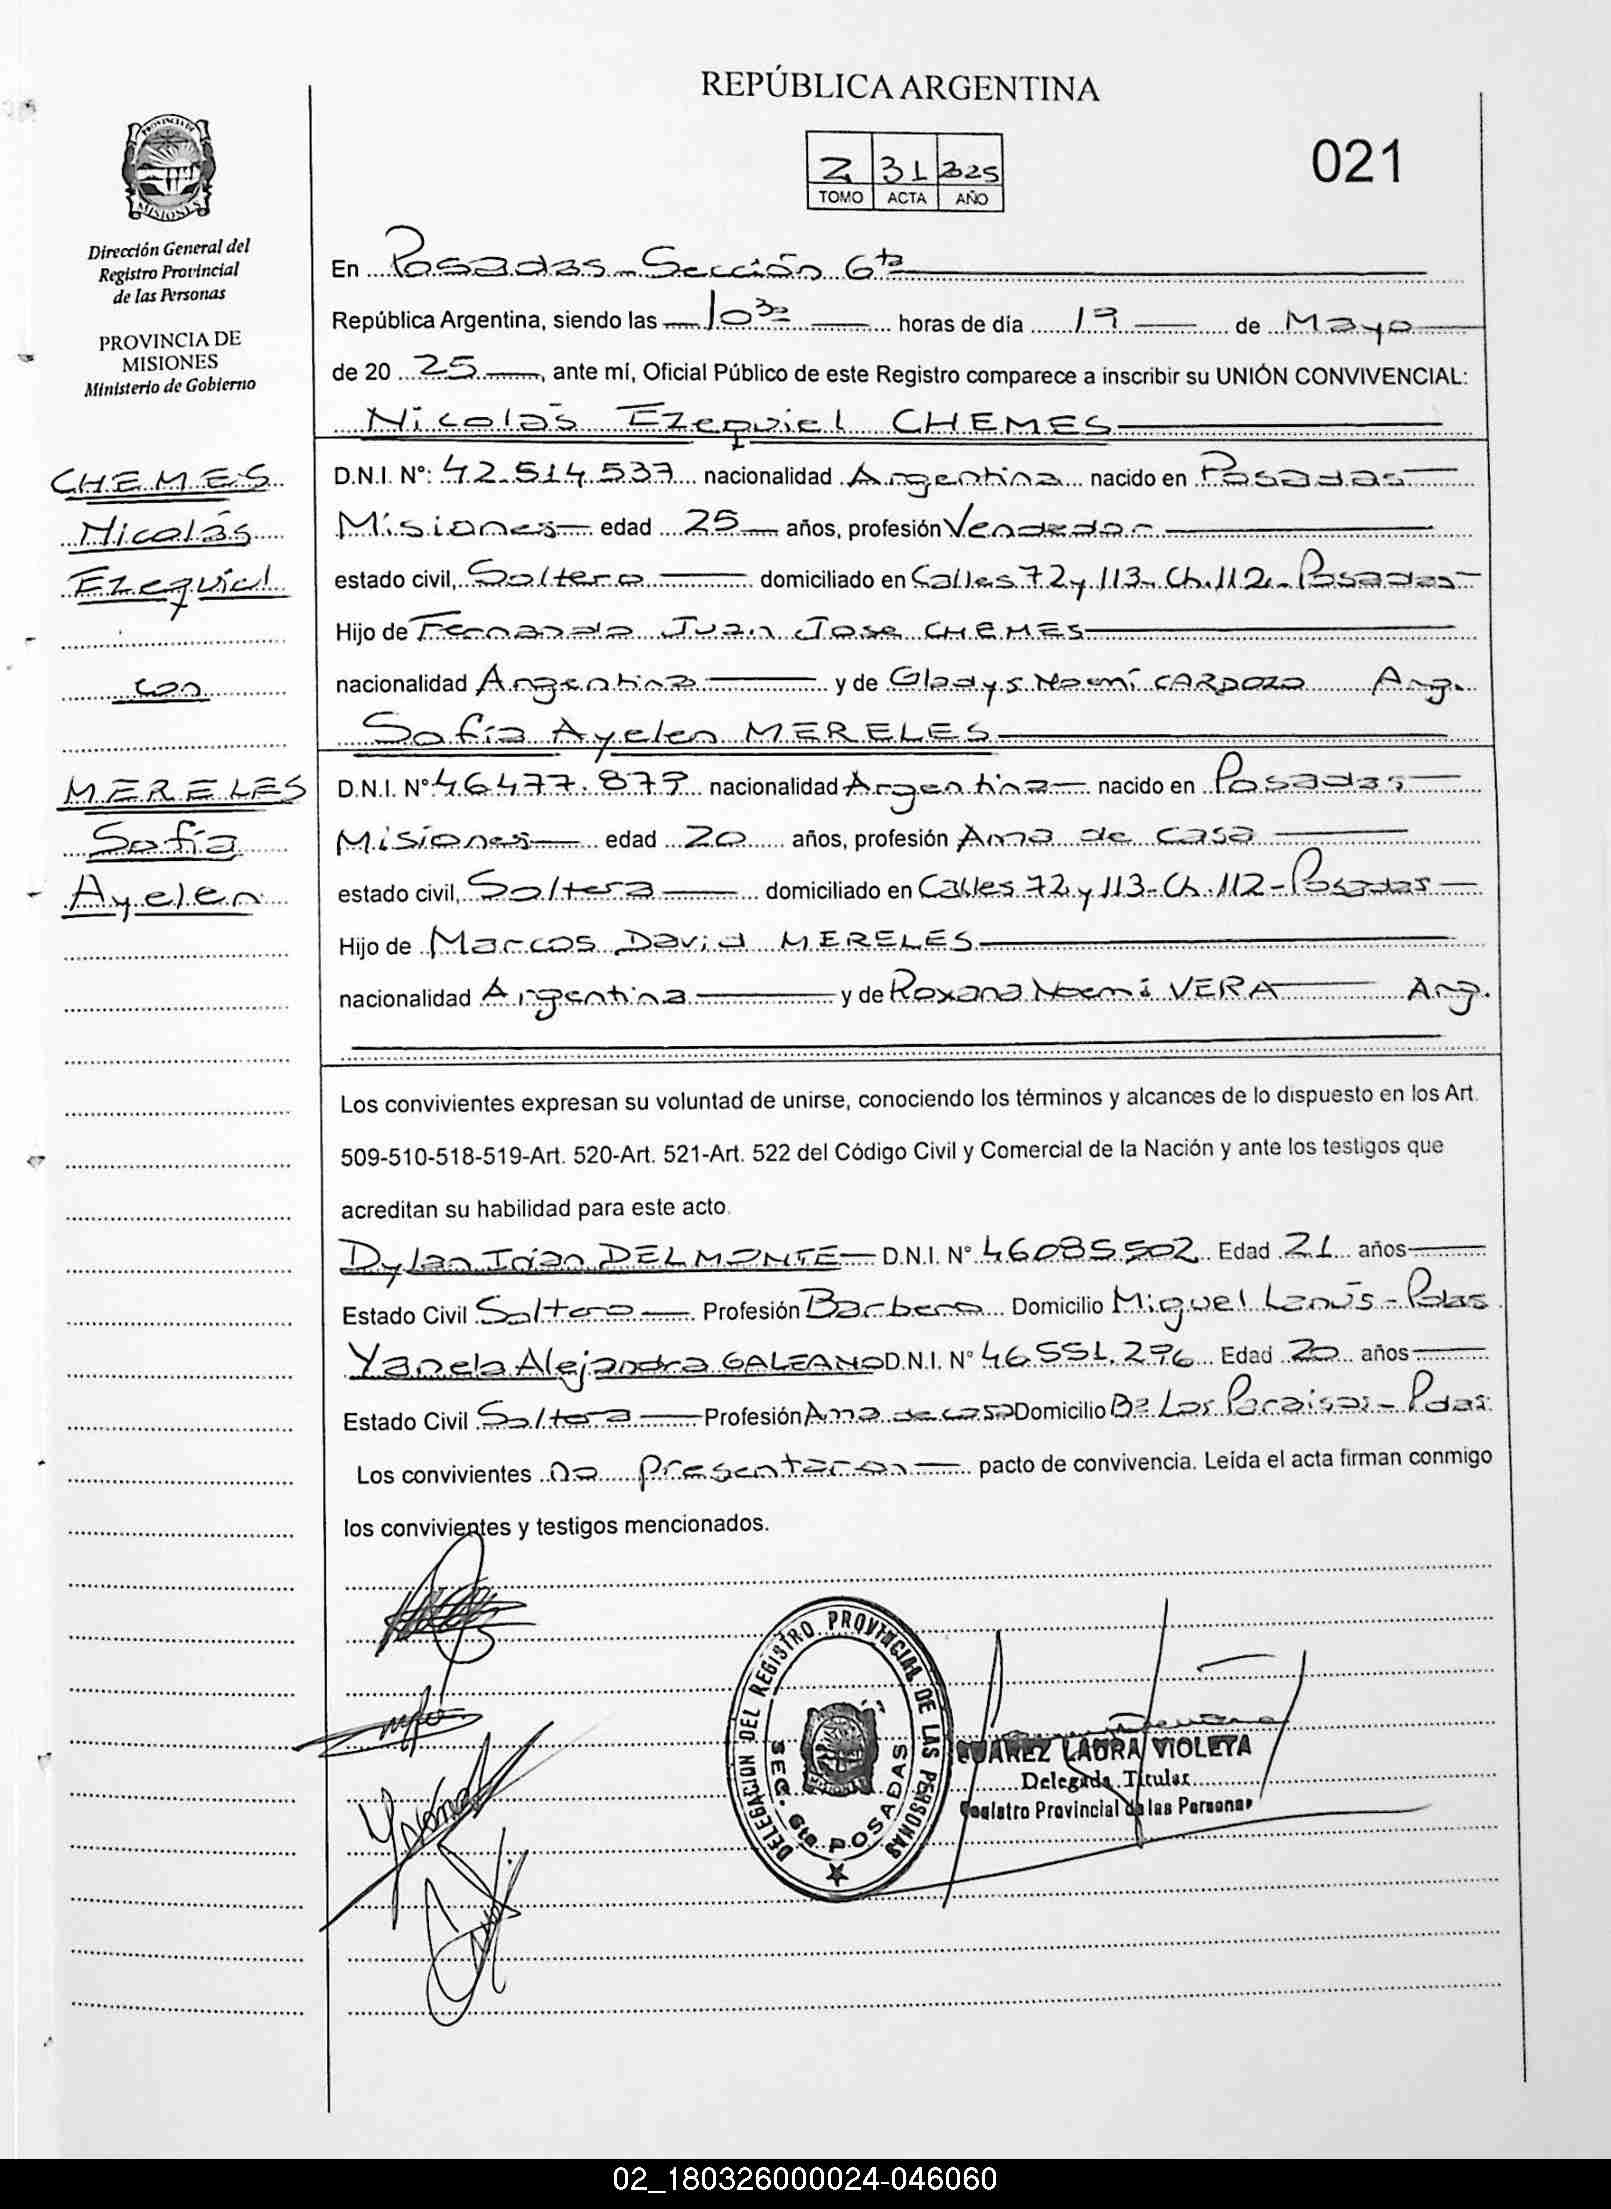 REPÚBLICA ARGENTINA
021
2 31 2025
TOMO ACTA AÑO
PROVINCIA DE
MISIONES
Dirección General del
Registro Provincial
de las Personas
PROVINCIA DE
MISIONES
Ministerio de Gobierno
CHEMES
Nicolás
Ezequiel
con
MERELES
Sofía
Ayelen
En Posadas - Sección 6ta
República Argentina, siendo las 10 30 horas de día 19 de Mayo
de 20 25, ante mí, Oficial Público de este Registro comparece a inscribir su UNIÓN CONVIVENCIAL:
Nicolás Ezequiel CHEMES
D.N.I. N°: 42.514.537 nacionalidad Argentina nacido en Posadas
Misiones edad 25 años, profesión Vendedor
estado civil, Soltero domiciliado en Calles 72 y 113- Ch. 112- Posadas
Hijo de Fernando Juan Jose CHEMES
nacionalidad Argentina y de Gladys Noemí CARDOZO Arg.
Sofía Ayelen MERELES
D.N.I. N° 46477.879 nacionalidad Argentina nacido en Posadas
Misiones edad 20 años, profesión Ama de casa
estado civil, Soltera domiciliado en Calles 72 y 113- Ch. 112- Posadas
Hijo de Marcos David MERELES
nacionalidad Argentina y de Roxana Noemí VERA Arg.
Los convivientes expresan su voluntad de unirse, conociendo los términos y alcances de lo dispuesto en los Art.
509-510-518-519-Art. 520-Art. 521-Art. 522 del Código Civil y Comercial de la Nación y ante los testigos que
acreditan su habilidad para este acto.
Dylan DELMONTE D.N.I. N° 46085.502 Edad 21 años
Estado Civil Soltero Profesión Barbero Domicilio Miguel Lanús -
Yanela Alejandra GALEANO D.N.I. N° 46.551.296 Edad 20 años
Estado Civil Soltera Profesión Ama de casa Domicilio B° Los Paraisos - Pdas.
Los convivientes no presentaron pacto de convivencia. Leída el acta firman conmigo
los convivientes y testigos mencionados.
DELEGACION DEL REGISTRO PROVINCIAL DE LAS PERSONAS
SEC. 6ta POSADAS
MISIONES
SUAREZ LAURA VIOLETA
Delegada Titular
Registro Provincial de las Personas
02_180326000024-046060